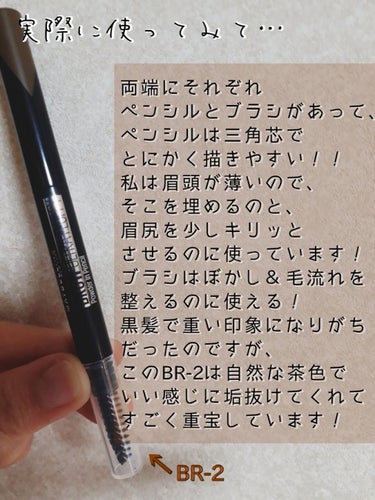 実際に使ってみて…
両端にそれぞれ
ペンシルとブラシがあって、
ペンシルは三角芯で
とにかく描きやすい！！
私は眉頭が薄いので、
そこを埋めるのと、
眉尻を少しキリッと
させるのに使っています！
ブラシはぼかし＆毛流れを
整えるのに使える！
黒髪で重い印象になりがち
だったのですが、
このBR-2は自然な茶色で
いい感じに垢抜けてくれて
すごく重宝しています！
BR-2